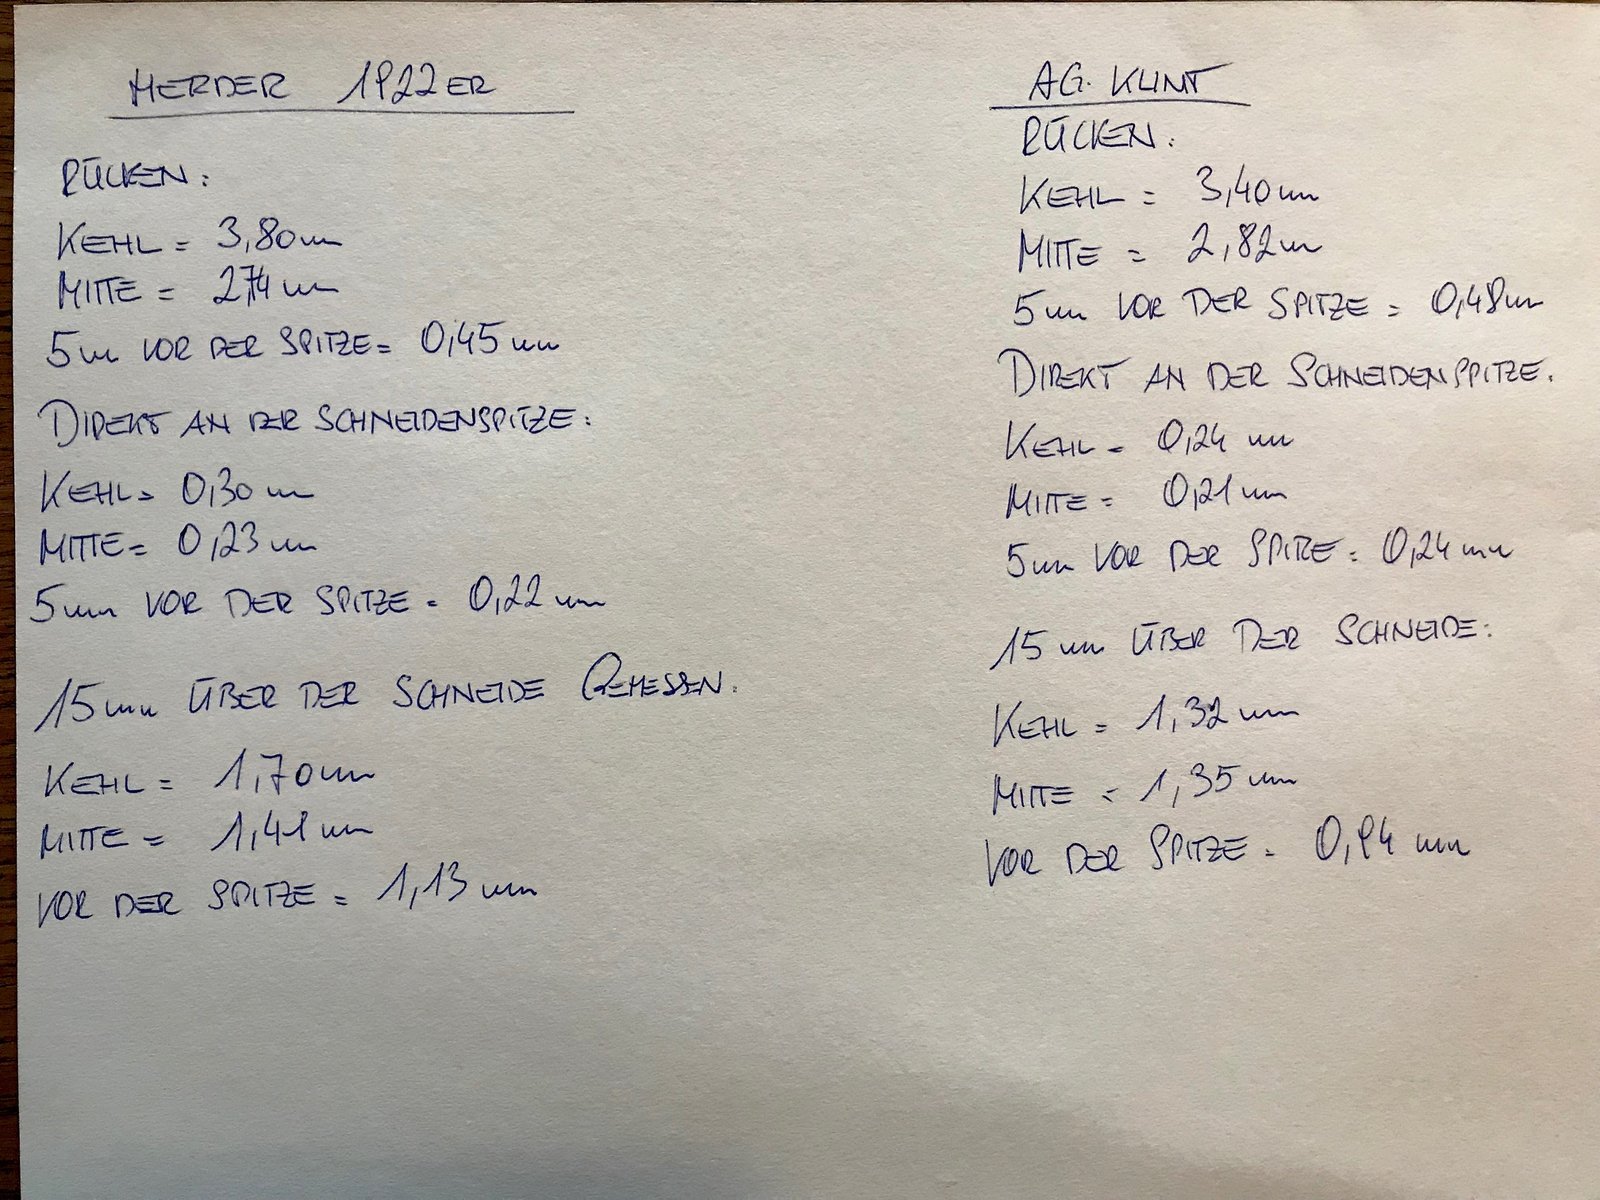 HERDER 1922ER
RÜCKEN:
KEHL = 3,80mm
MITTE = 2,74mm
5mm VOR DER SPITZE = 0,45mm
DIREKT AN DER SCHNEIDENSPITZE:
KEHL = 0,30mm
MITTE = 0,23mm
5mm VOR DER SPITZE = 0,22mm
15mm ÜBER DER SCHNEIDE GEMESSEN:
KEHL = 1,70mm
MITTE = 1,41mm
VOR DER SPITZE = 1,13mm
AG. KLINT
RÜCKEN:
KEHL = 3,40mm
MITTE = 2,82mm
5mm VOR DER SPITZE = 0,48mm
DIREKT AN DER SCHNEIDENSPITZE:
KEHL = 0,24mm
MITTE = 0,21mm
5mm VOR DER SPITZE = 0,24mm
15mm ÜBER DER SCHNEIDE:
KEHL = 1,32mm
MITTE = 1,35mm
VOR DER SPITZE = 0,94mm